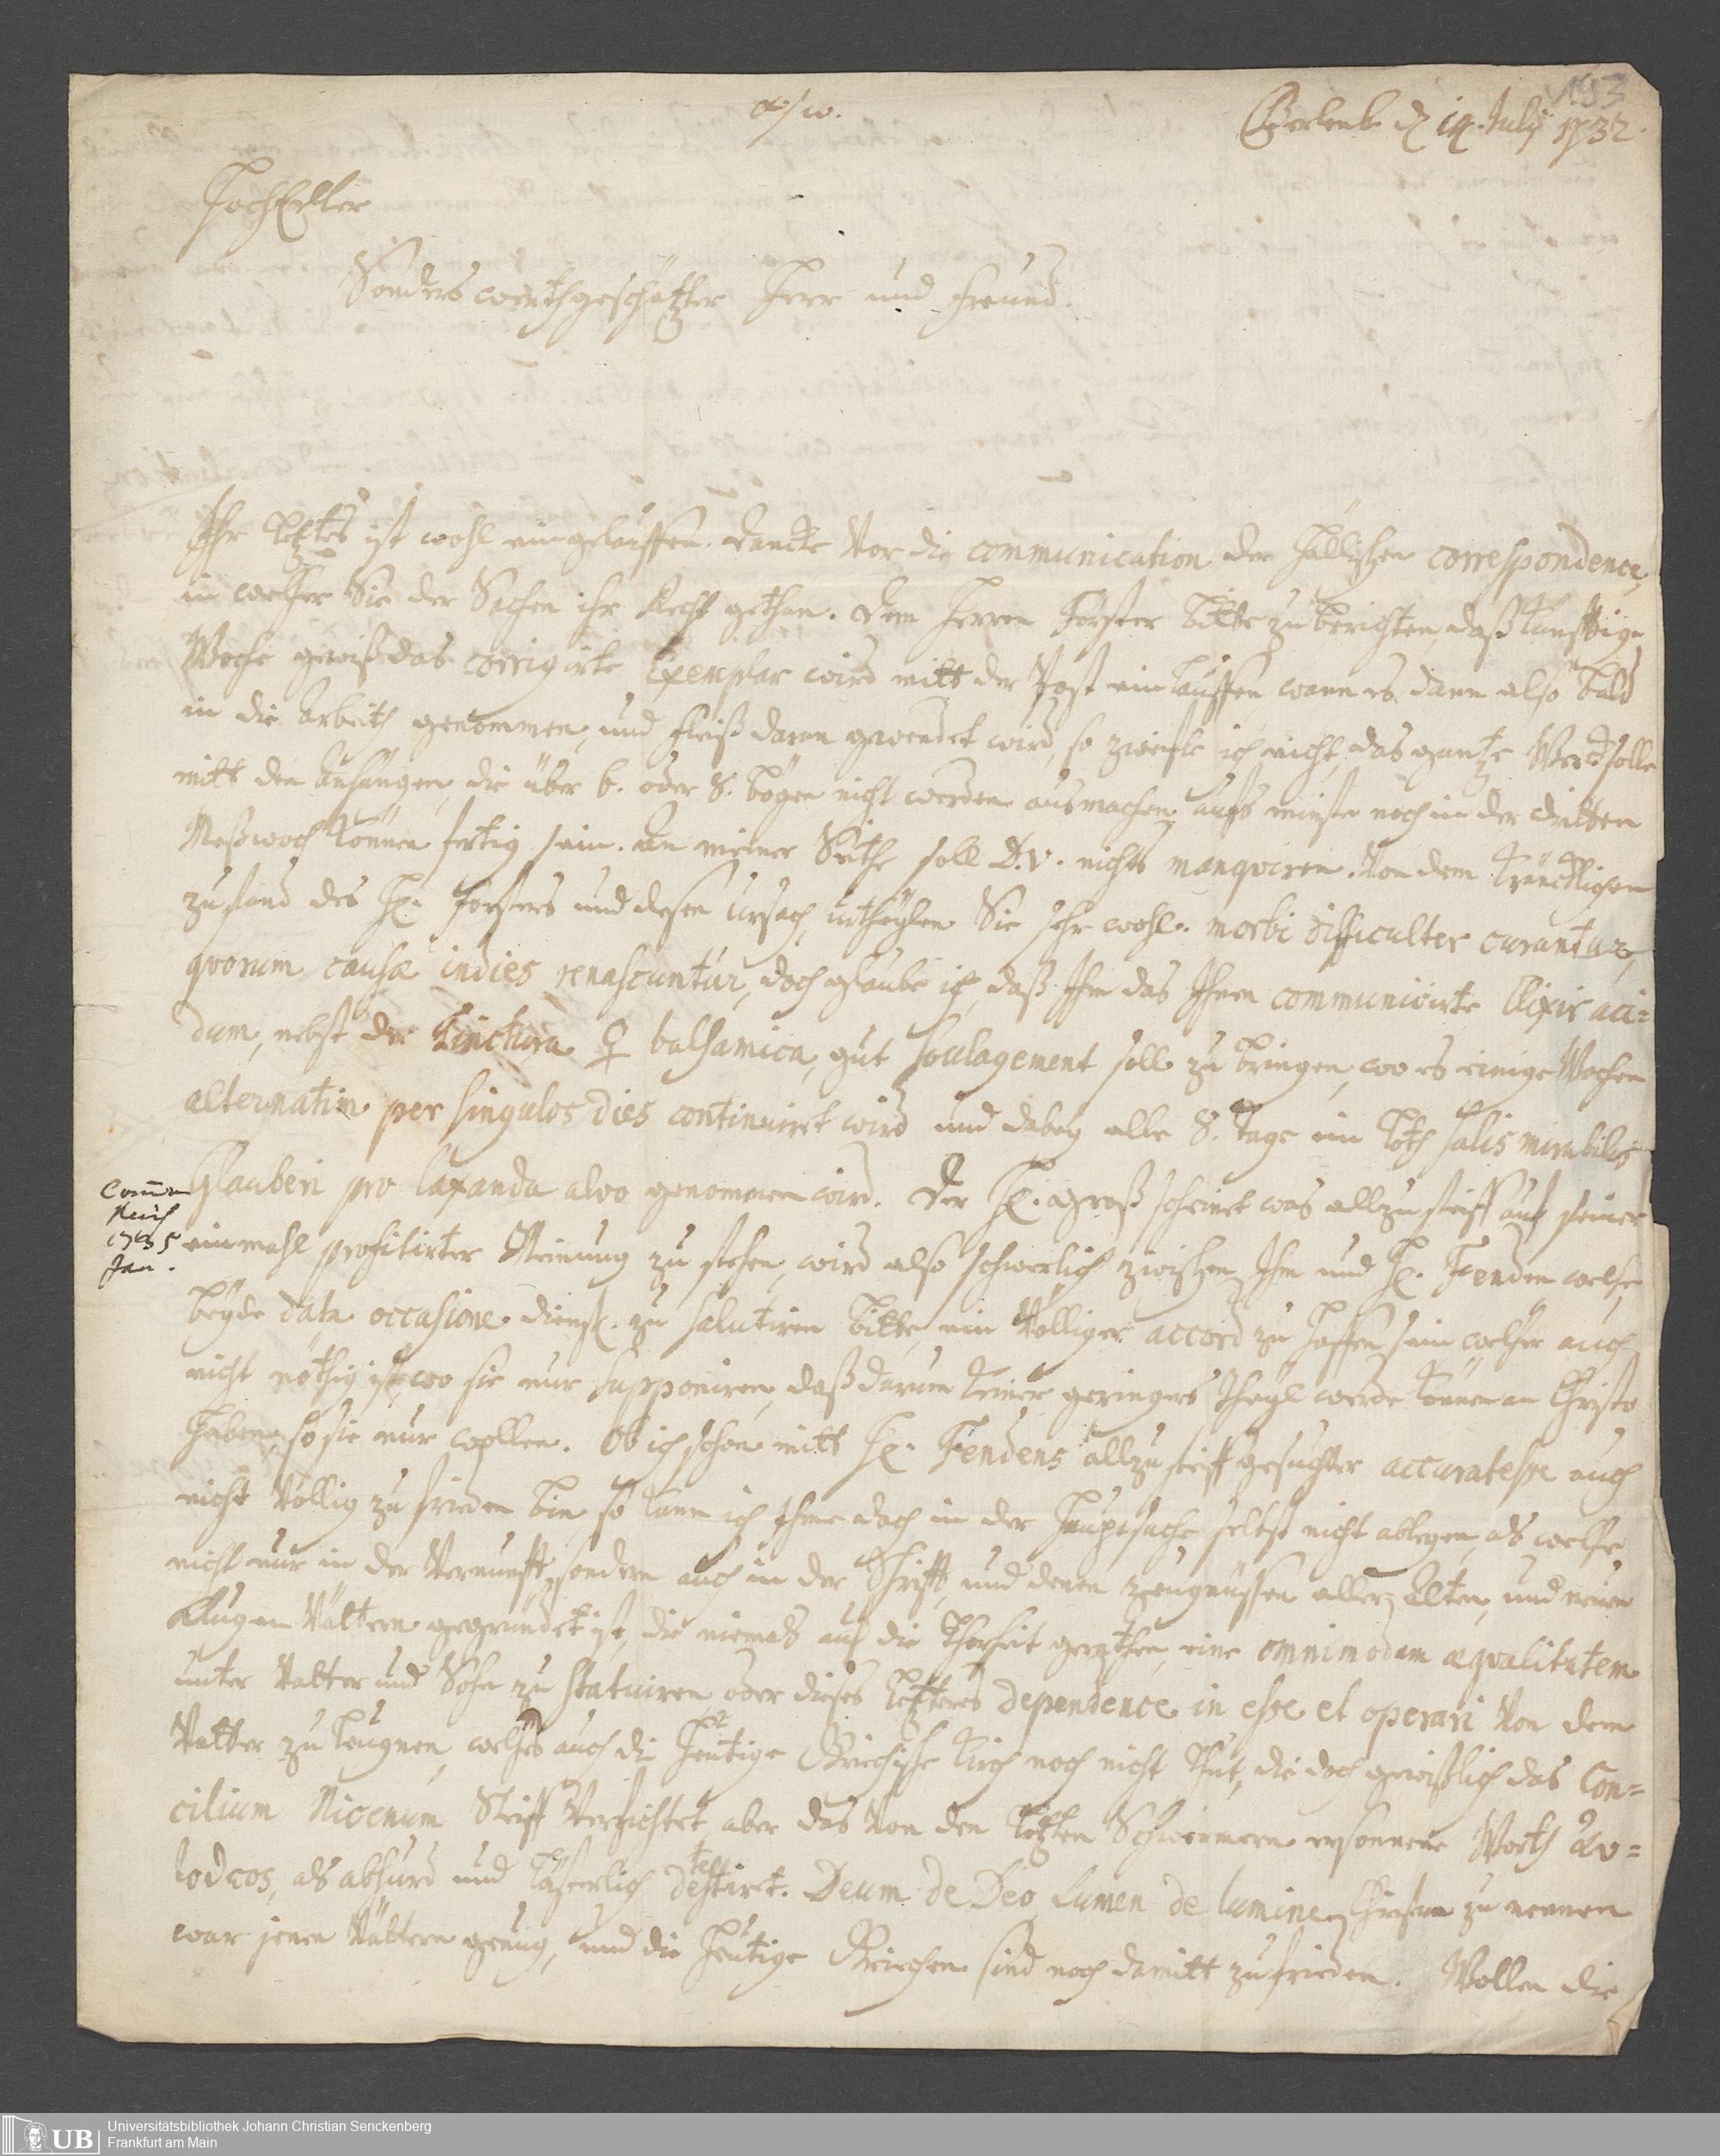 193
α/ω.
Berleb. d. 14. July 1732.
HochEdler
Sonders werthgeschätzter Herr und Freund.
Ihr letztes ist wohl eingelauffen. dancke vor die communication der Hällischen correspondence,
in welcher Sie der Sachen ihr Recht gethan. dem Herren Förster bitte zu berichten, daß künfftige
Woche gewiß das corrigirte Exemplar wird mitt der Post einlauffen, wann es dann also bald
in die Arbeith genommen, und fleiß daran gewendet wird, so zweifle ich nicht, das gantze Werck solle
mitt den anhängen, die über 6. oder 8. bögen nicht werden ausmachen, aufs minste noch in der dritten
Meßwoch können fertig sein. An meiner Seithe soll D.V. nichts manqviren. Von dem kräncklichen
zustand des H. Försters und dessen ursach, urtheylen Sie sehr wohl. morbi difficulter curantur,
qvorum causæ indies renascuntur, doch glaube ich, daß Ihm das Ihnen communicirte Elixir aci=
dum, nebst der Tinctura ♀ balsamica, gut soulagement soll zu bringen, wo es einige Wochen
alternatim per singulos dies continuirt wird und dabey alle 8. tage ein Loth salis mirabilis
Glauberi pro laxanda alvo genommen wird. Der H. Groß scheinet was allzu steiff auf seiner
einmahl profitirter Meinung zu stehen, wird also schwerlich zwischen Ihm und H. Fenden, welche
beyde data occasione dienstl. zu salutiren bitte, ein Völliger accord zu hoffen sein, welcher auch
nicht nöthig ist, wo sie nur supponiren, daß darum keiner geringers theyl werde können an Christo
haben, so sie nur wollen. Ob ich schon mitt H. Fendens allzu steiff gesuchter accuratesse auch
nicht völlig zu frieden bin, so kann ich Ihme doch in der Hauptsache selbst nicht ablegen, als welche
nicht nur in der Vernunfft, sondern auch in der Schrifft, und denen zeugnüssen aller Alten, und neuen
klugen Vättern gegründet ist, die niemals auf die Thorheit gerathen, eine omnimodam æqvalitatem
unter Vatter und Sohn zu statuiren oder dieses letzteres dependence in esse et operari Von dem
Vatter zu leugnen, welches auch die heutige Griechische Kirch noch nicht thut, die doch gewißlich das Con=
cilium Nicenum steiff verfichtet, aber das Von den letzten Schwermern ersonnene Worth
als absurd und lästerlich detestiret. Deum de Deo, Lumen de lumine, Christum zu nennen
war jenen Vättern genug, und die heutige Griechen sind noch damitt zufrieden. Wollen die
Jan.
Universitätsbibliothek Johann Christian Senckenberg
Frankfurt am Main
UB